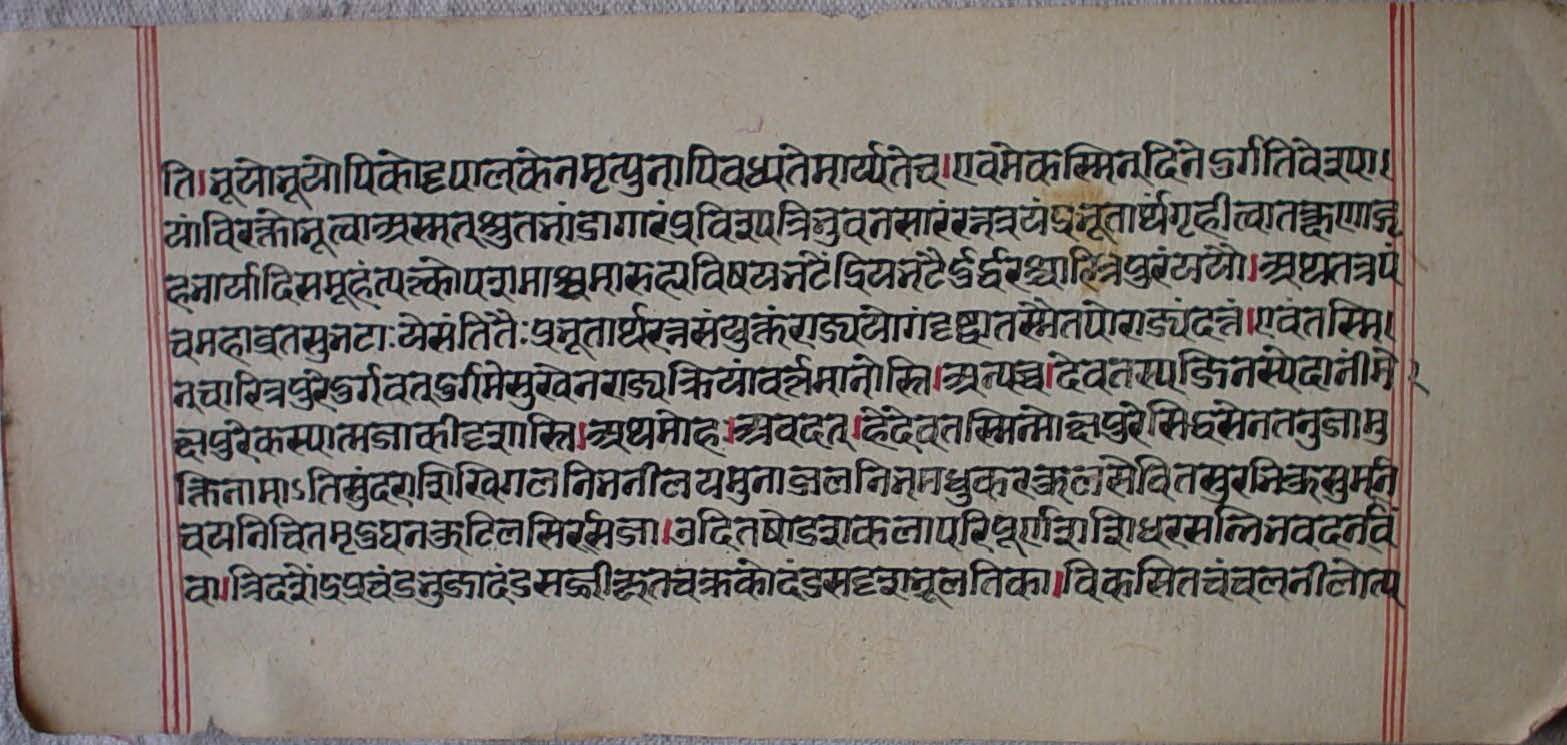 ति।भूयोभूयोपिकोट्टपालकेनमृत्युनापिवध्यतेमार्य्यतेच।एवमेकस्मिनदिनेदुर्गतिवेश्या।
यांविरक्तोभूत्वाअस्मत्श्रुतभांडागारंप्रविश्यत्रिभुवनसारंरत्नत्रयंप्रभूतार्थंगृहीत्वातत्क्षणाद्गृ
हभार्यादिसमूहंत्यक्त्कोपशमाश्वमारुह्यविषयभटेंद्रियभटैर्दुर्द्धरश्चारित्रपुरंययौ।अथतत्रपं
चमहाव्रतसुभटाःयेसंतितैःप्रभूतार्थरत्नसंयुक्तंराज्ययोगंदृष्ट्वातस्मैतपोराज्यंदत्तं।एवंतस्मि।
न्चारित्रपुरेदुर्गवत्दुर्गमेसुखेनराज्यक्रियांवर्त्तमानोस्ति।अन्यच्च।देवतस्यजिनस्येदानींमो
क्षपुरेकस्यात्मजाकीदृशास्ति।अथमोह।अवदत्।हेदेवतस्मिन्मोक्षपुरेसिद्धसेनतनुजामु
क्तिनामाऽतिसुंदराशिखिगलनिभनीलयमुनाजलनिभमधुकरकुलसेवितसुरभिकुसुमनि
चयनिचितमृदुघनकुटिलसिरसिजा।उदितषोडशकलापरिपूर्णशशिधरसन्निभवदनबिं
बा।त्रिदशेंद्रप्रचंडभुजादंडसज्जीकृतवक्रकोदंडसदृशभ्रूलतिका।विकसितचंचलनीलोत्प